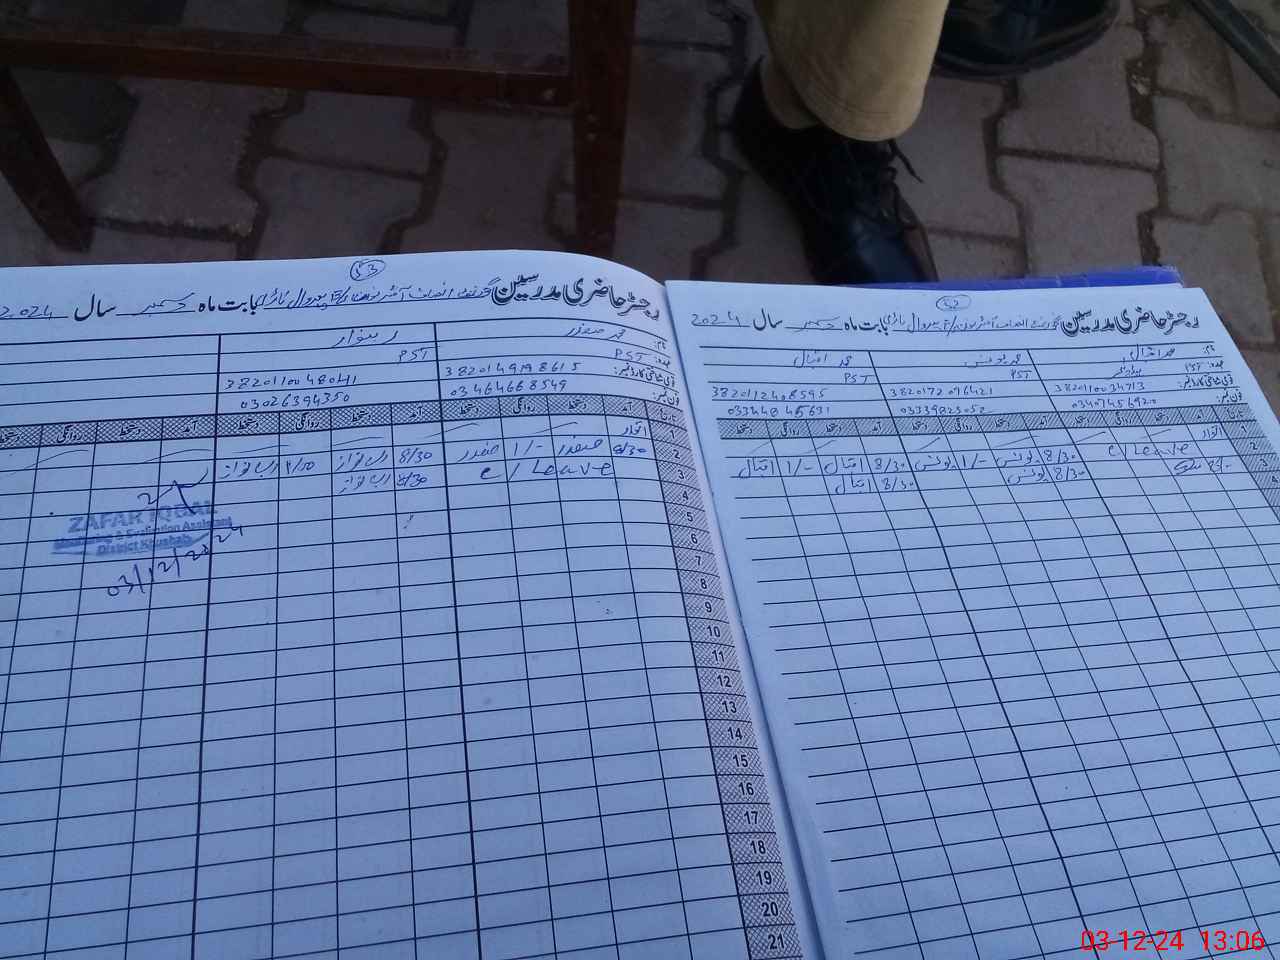 53
رجسٹر حاضری مدرسین گورنمنٹ بابت ماہ دسمبر سال 2024
نام: محمد صفدر
عہدہ: PST PST
قومی شناختی کارڈ نمبر: 3820149198615 3820110048041
فون نمبر: 03464668549 03026394350
تاریخ آمد دستخط روانگی دستخط آمد دستخط روانگی دستخط آمد دستخط روانگی دستخط
1 اتوار
2 8/30 صفدر 1/- صفدر 8/30
3 c/Leave 8/30
4
5
6
7
8
9
10
11
12
13
14
15
16
17
18
19
20
21
ZAFAR IQBAL
Monitoring & Evaluation Assistant
District Khushab
03/12/2024
52
رجسٹر حاضری مدرسین گورنمنٹ بابت ماہ دسمبر سال 2024
نام: محمد اقبال محمد یونس محمد اقبال
عہدہ: PST PST PST
قومی شناختی کارڈ نمبر: 3820110034713 3820172096421 3820112408595
فون نمبر: 03407456920 03339823052
تاریخ آمد دستخط روانگی دستخط آمد دستخط روانگی دستخط آمد دستخط روانگی دستخط
1 اتوار
2 c/Leave 8/30 یونس 1/- یونس 8/30 اقبال 1/- اقبال
3 8/30 یونس 8/30 اقبال
4
03-12-24 13:06